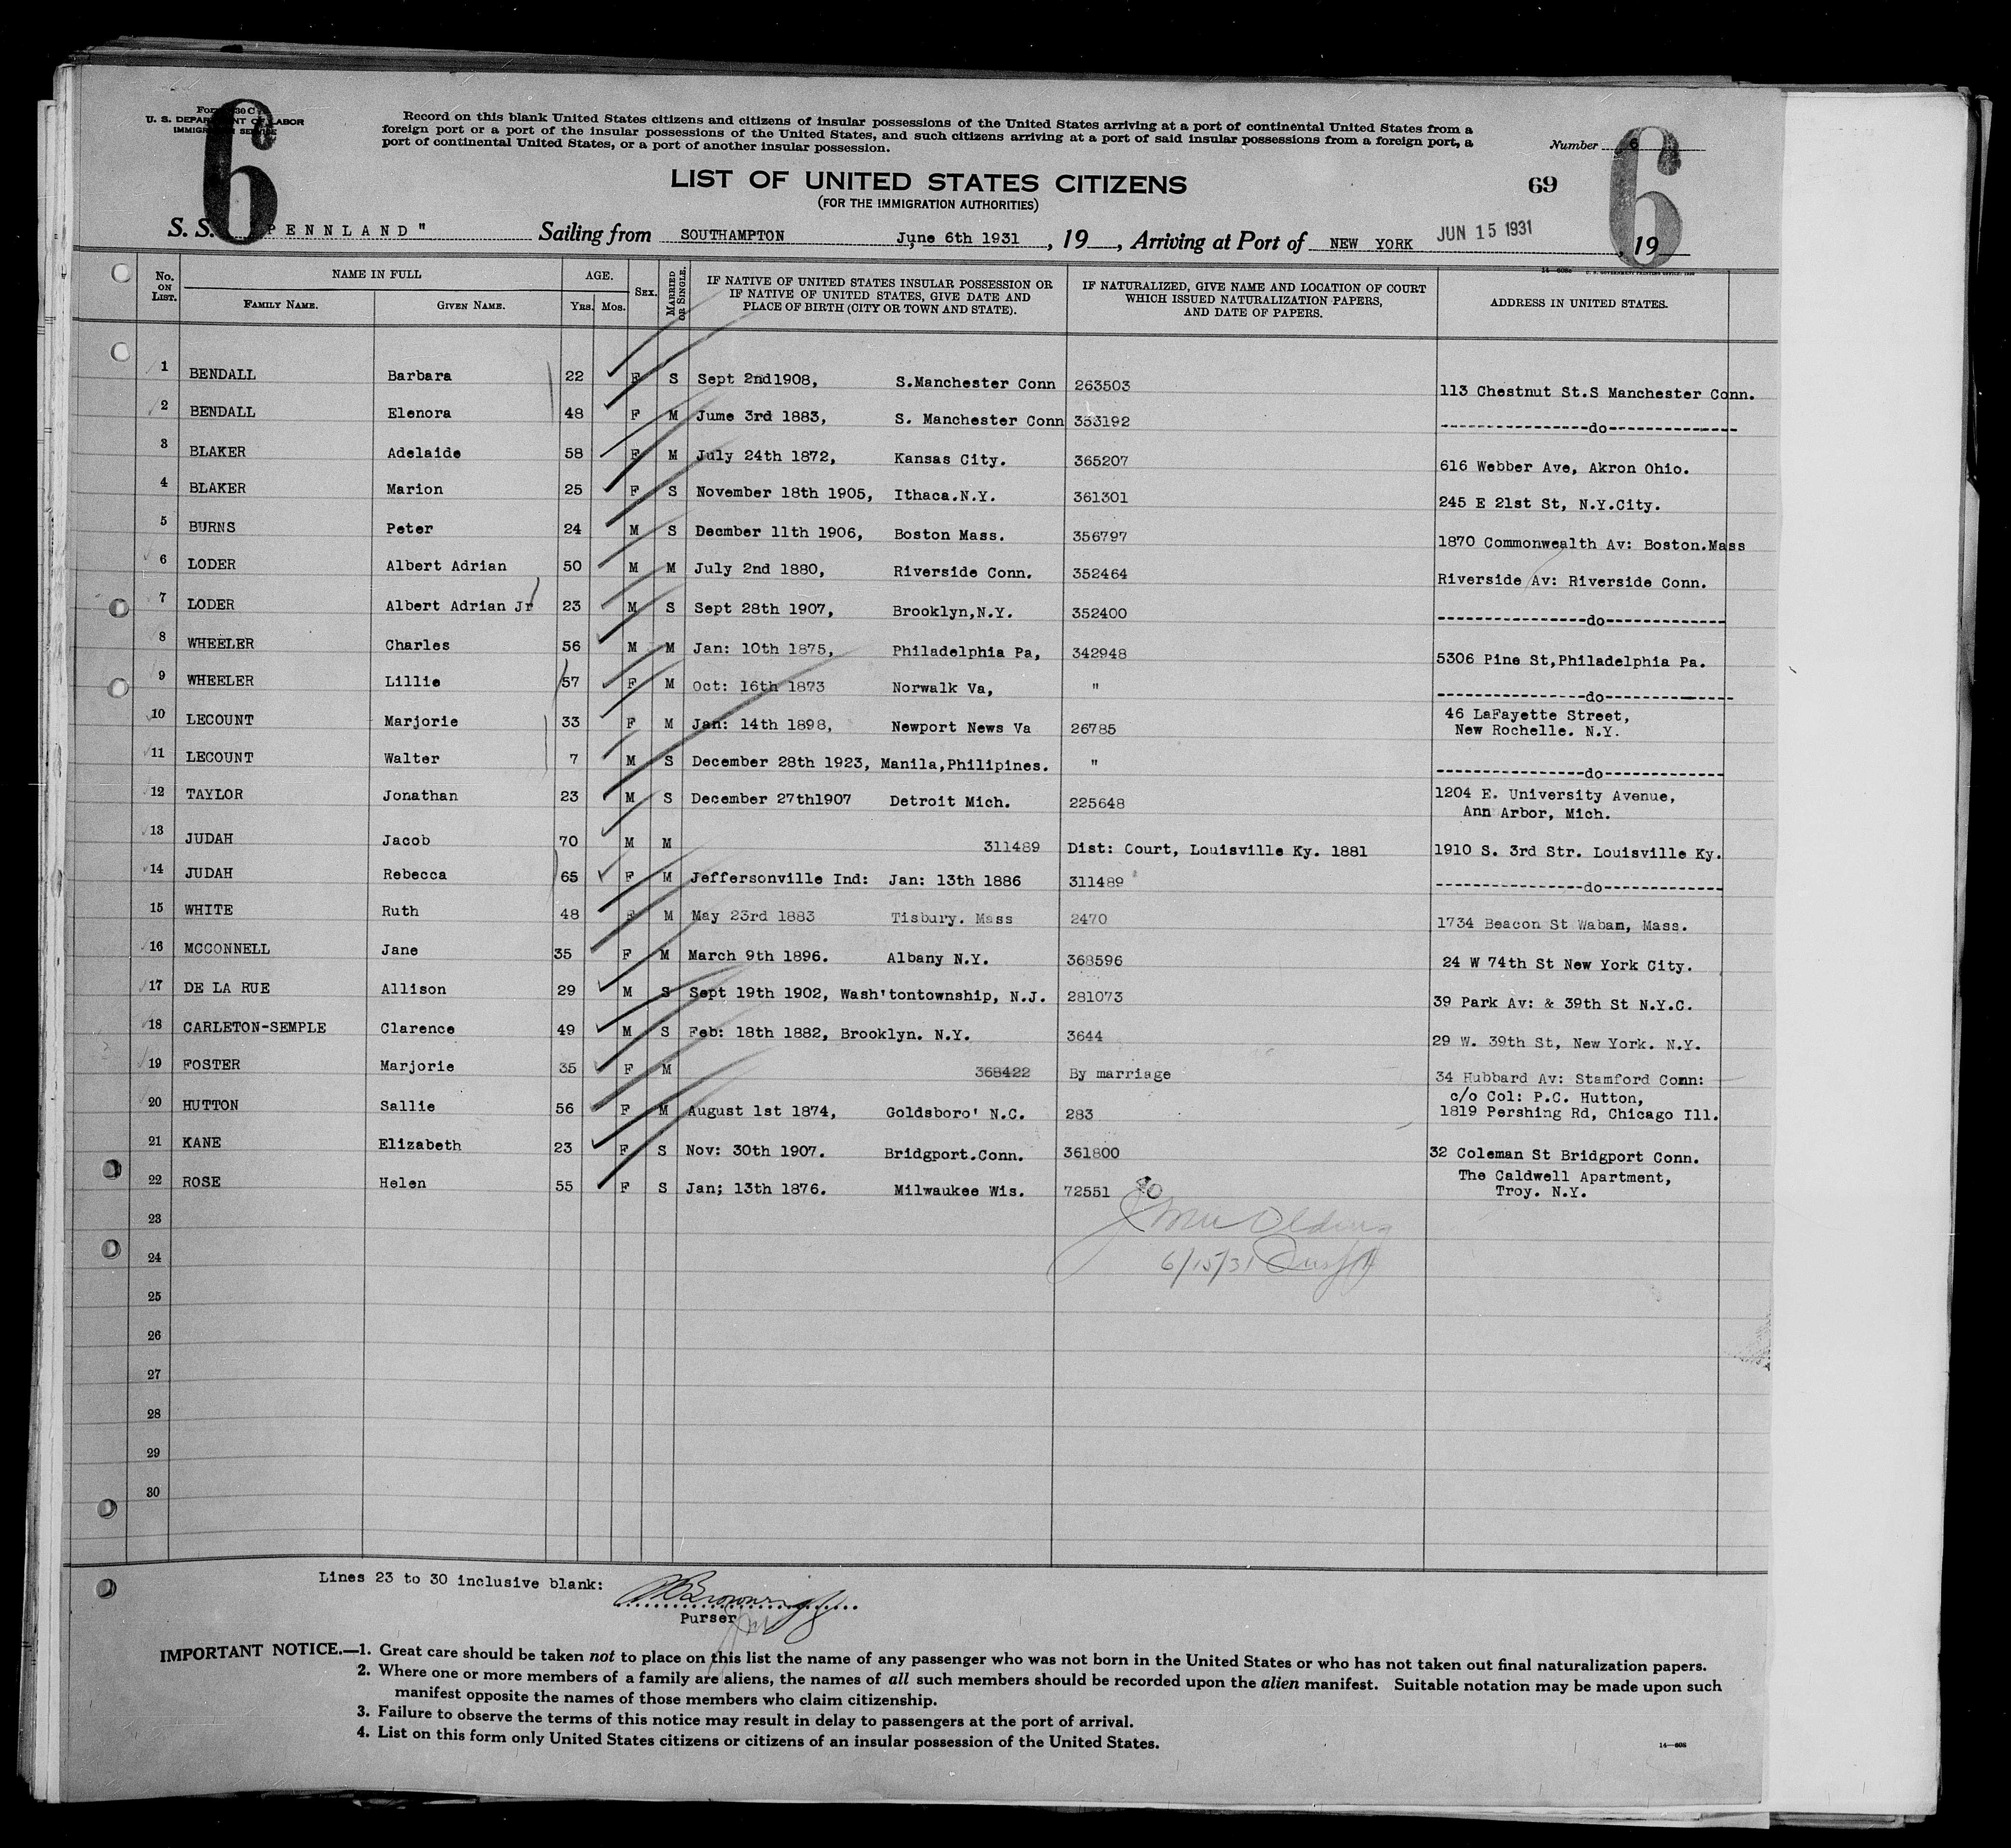 Form 630 C
U. S. DEPARTMENT OF LABOR
IMMIGRATION SERVICE
6
Record on this blank United States citizens and citizens of insular possessions of the United States arriving at a port of continental United States from a
foreign port or a port of the insular possessions of the United States, and such citizens arriving at a port of said insular possessions from a foreign port, a
port of continental United States, or a port of another insular possession.
Number 6
6
LIST OF UNITED STATES CITIZENS
(FOR THE IMMIGRATION AUTHORITIES)
69
S. S. PENNLAND" Sailing from SOUTHAMPTON June 6th 1931, 19 , Arriving at Port of NEW YORK JUN 15 1931, 19
No. ON LIST. NAME IN FULL FAMILY NAME. GIVEN NAME. AGE. YRS. MOS. SEX. MARRIED OR SINGLE. IF NATIVE OF UNITED STATES INSULAR POSSESSION OR IF NATIVE OF UNITED STATES, GIVE DATE AND PLACE OF BIRTH (CITY OR TOWN AND STATE). IF NATURALIZED, GIVE NAME AND LOCATION OF COURT WHICH ISSUED NATURALIZATION PAPERS, AND DATE OF PAPERS. ADDRESS IN UNITED STATES.
1 BENDALL Barbara 22 F S Sept 2nd1908, S.Manchester Conn 263503 113 Chestnut St.S Manchester Conn.
2 BENDALL Elenora 48 F M Jume 3rd 1883, S. Manchester Conn 353192 ----------------do--------------
3 BLAKER Adelaide 58 F M July 24th 1872, Kansas City. 365207 616 Webber Ave, Akron Ohio.
4 BLAKER Marion 25 F S November 18th 1905, Ithaca.N.Y. 361301 245 E 21st St, N.Y.City.
5 BURNS Peter 24 M S Decmber 11th 1906, Boston Mass. 356797 1870 Commonwealth Av: Boston.Mass
6 LODER Albert Adrian 50 M M July 2nd 1880, Riverside Conn. 352464 Riverside Av: Riverside Conn.
7 LODER Albert Adrian Jr 23 M S Sept 28th 1907, Brooklyn,N.Y. 352400 ----------------do-------------
8 WHEELER Charles 56 M M Jan: 10th 1875, Philadelphia Pa, 342948 5306 Pine St,Philadelphia Pa.
9 WHEELER Lillie 57 F M Oct: 16th 1873 Norwalk Va, " ----------------do--------------
10 LECOUNT Marjorie 33 F M Jan: 14th 1898, Newport News Va 26785 46 LaFayette Street,
New Rochelle. N.Y.
11 LECOUNT Walter 7 M S December 28th 1923, Manila,Philipines. " ----------------do-------------
12 TAYLOR Jonathan 23 M S December 27th1907 Detroit Mich. 225648 1204 E. University Avenue,
Ann Arbor, Mich.
13 JUDAH Jacob 70 M M 311489 Dist: Court, Louisville Ky. 1881 1910 S. 3rd Str. Louisville Ky.
14 JUDAH Rebecca 65 F M Jeffersonville Ind: Jan: 13th 1886 311489 ----------------do-------------
15 WHITE Ruth 48 F M May 23rd 1883 Tisbury. Mass 2470 1734 Beacon St Waban, Mass.
16 MCCONNELL Jane 35 F M March 9th 1896. Albany N.Y. 368596 24 W 74th St New York City.
17 DE LA RUE Allison 29 M S Sept 19th 1902, Wash'tontownship, N.J. 281073 39 Park Av: & 39th St N.Y.C.
18 CARLETON-SEMPLE Clarence 49 M S Feb: 18th 1882, Brooklyn. N.Y. 3644 29 W. 39th St, New York. N.Y.
19 FOSTER Marjorie 35 F M 368422 By marriage 34 Hubbard Av: Stamford Conn:
20 HUTTON Sallie 56 F M August 1st 1874, Goldsboro' N.C. 283 c/o Col: P.C. Hutton,
1819 Pershing Rd, Chicago Ill.
21 KANE Elizabeth 23 F S Nov: 30th 1907. Bridgport.Conn. 361800 32 Coleman St Bridgport Conn.
22 ROSE Helen 55 F S Jan; 13th 1876. Milwaukee Wis. 72551 The Caldwell Apartment,
Troy. N.Y.
23
24 6/15/31
25
26
27
28
29
30
Lines 23 to 30 inclusive blank:
Purser
IMPORTANT NOTICE.—1. Great care should be taken not to place on this list the name of any passenger who was not born in the United States or who has not taken out final naturalization papers.
2. Where one or more members of a family are aliens, the names of all such members should be recorded upon the alien manifest. Suitable notation may be made upon such
manifest opposite the names of those members who claim citizenship.
3. Failure to observe the terms of this notice may result in delay to passengers at the port of arrival.
4. List on this form only United States citizens or citizens of an insular possession of the United States.
14—608